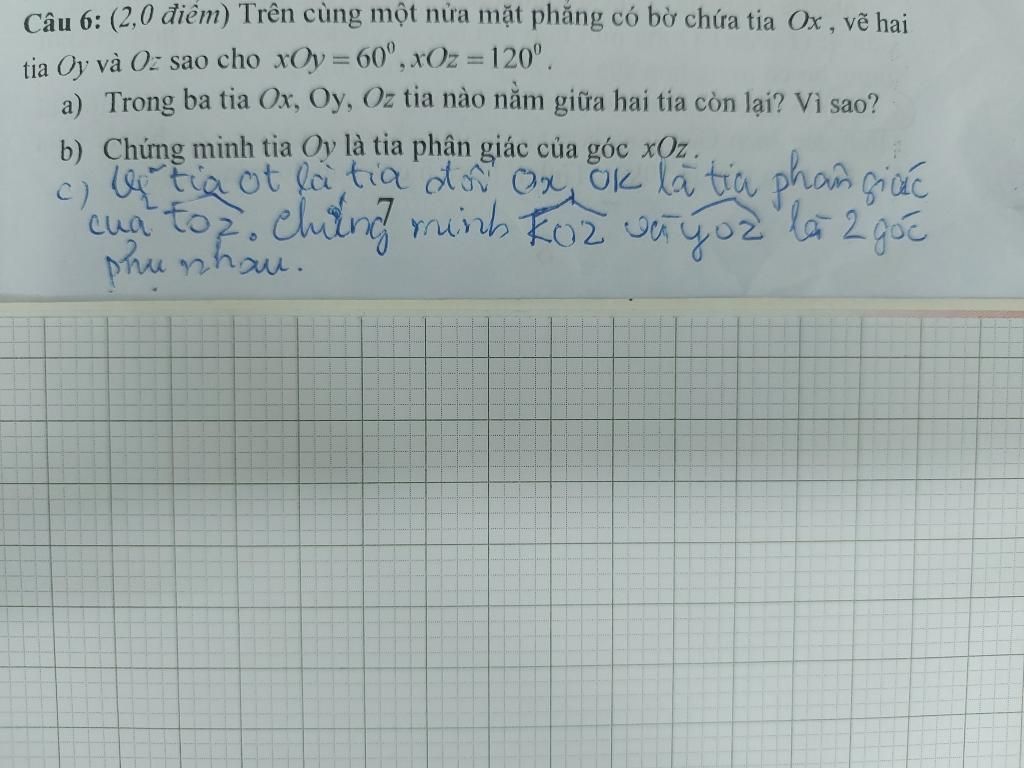 Câu 6: (2,0 điểm) Trên cùng một nửa mặt phẳng có bờ chứa tia Ox , vẽ hai
tia Oy và Oz sao cho xOy = 60⁰ , xOz = 120⁰ .
a) Trong ba tia Ox, Oy, Oz tia nào nằm giữa hai tia còn lại? Vì sao?
b) Chứng minh tia Oy là tia phân giác của góc xOz .
c) Vẽ tia Ot là tia đối Ox, OK là tia phân giác
của tOz. Chứng minh KOz và yOz là 2 góc
phụ nhau.